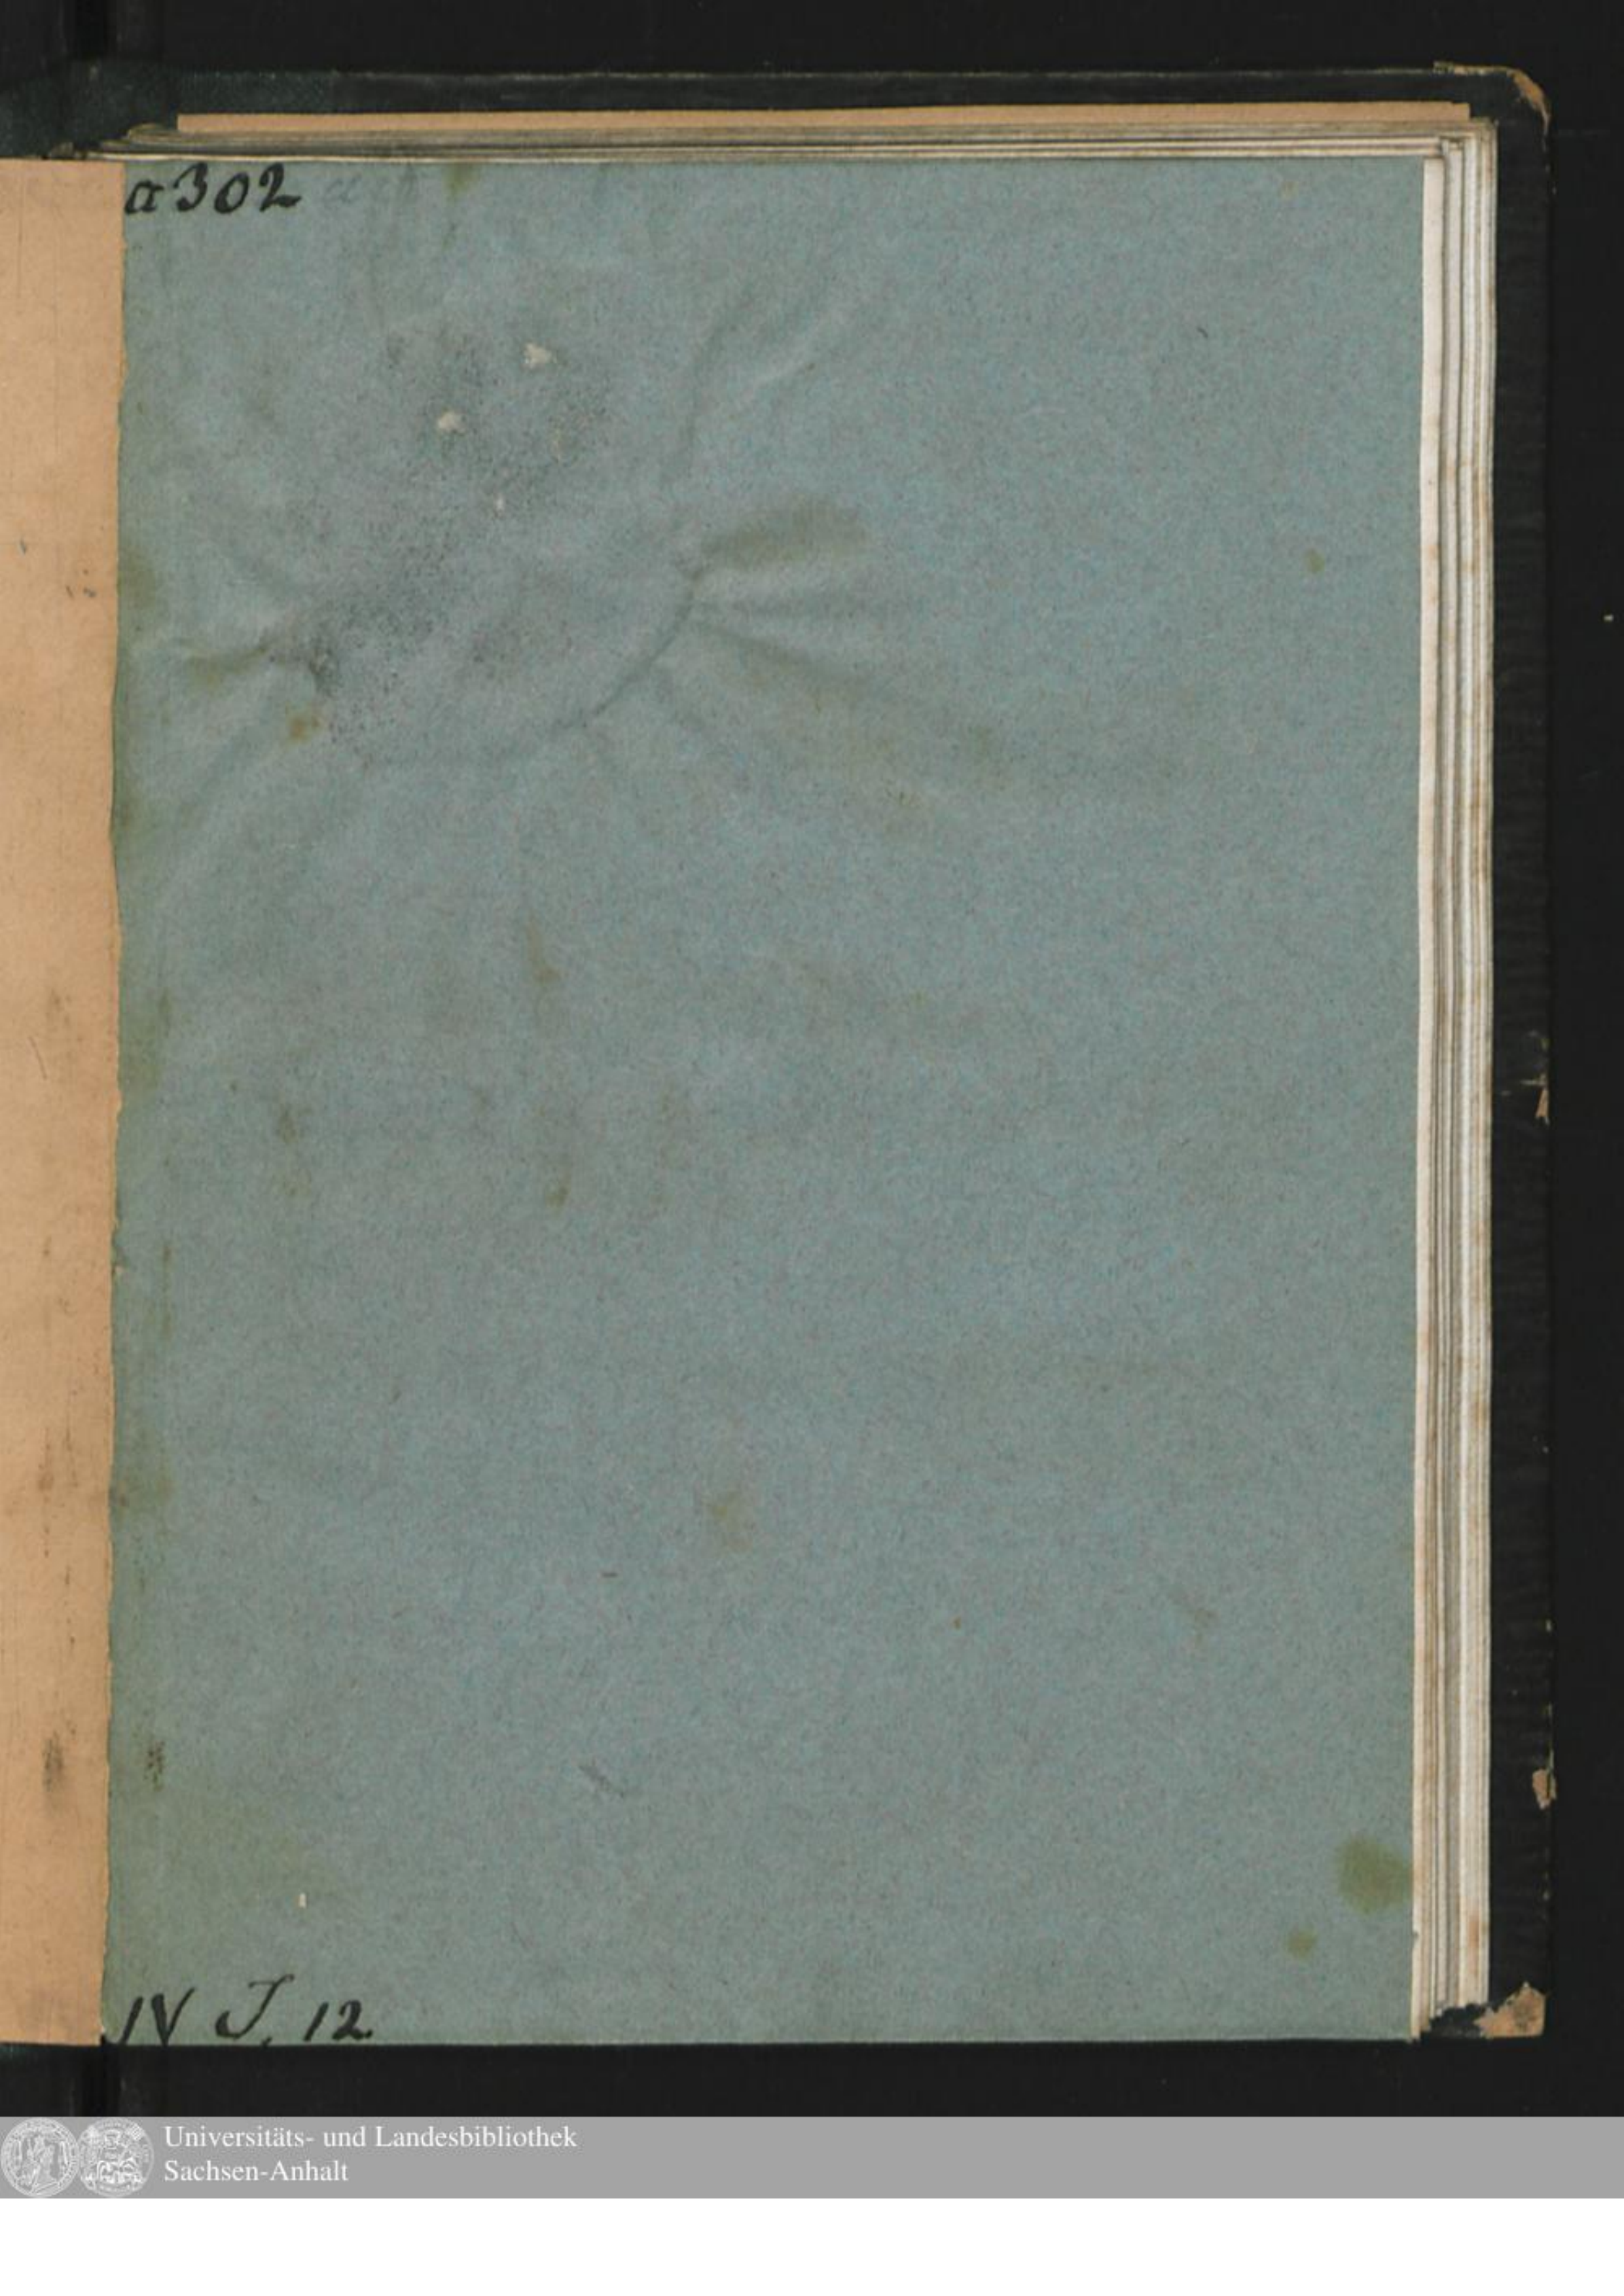 a302
IV J, 12
Universitäts- und Landesbibliothek
Sachsen-Anhalt